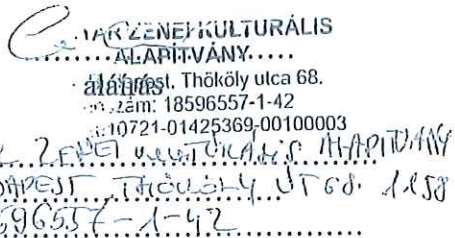 ZENEI KULTURÁLIS
ALAPÍTVÁNY.....
aláírás st. Thököly utca 68.
szám: 18596557-1-42
10721-01425369-00100003
ZENEI KULTURÁLIS ALAPÍTVÁNY
DAPEST THÖKÖLY ÚT 68. 1158
596557-1-42